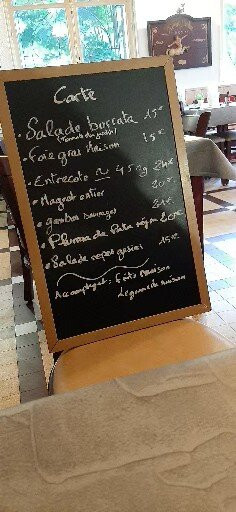 Carte
• Salade burrata 15€
(tomate du jardin)
• Foie gras Maison 15€
• Entrecote ~ 450g 24€
• Magret entier 20€
• gambas sauvages 21€
• Pluma de Pata negra 20€
• Salade repas gesiers 15€
Accompagt: frites Maison
Legumes de saison